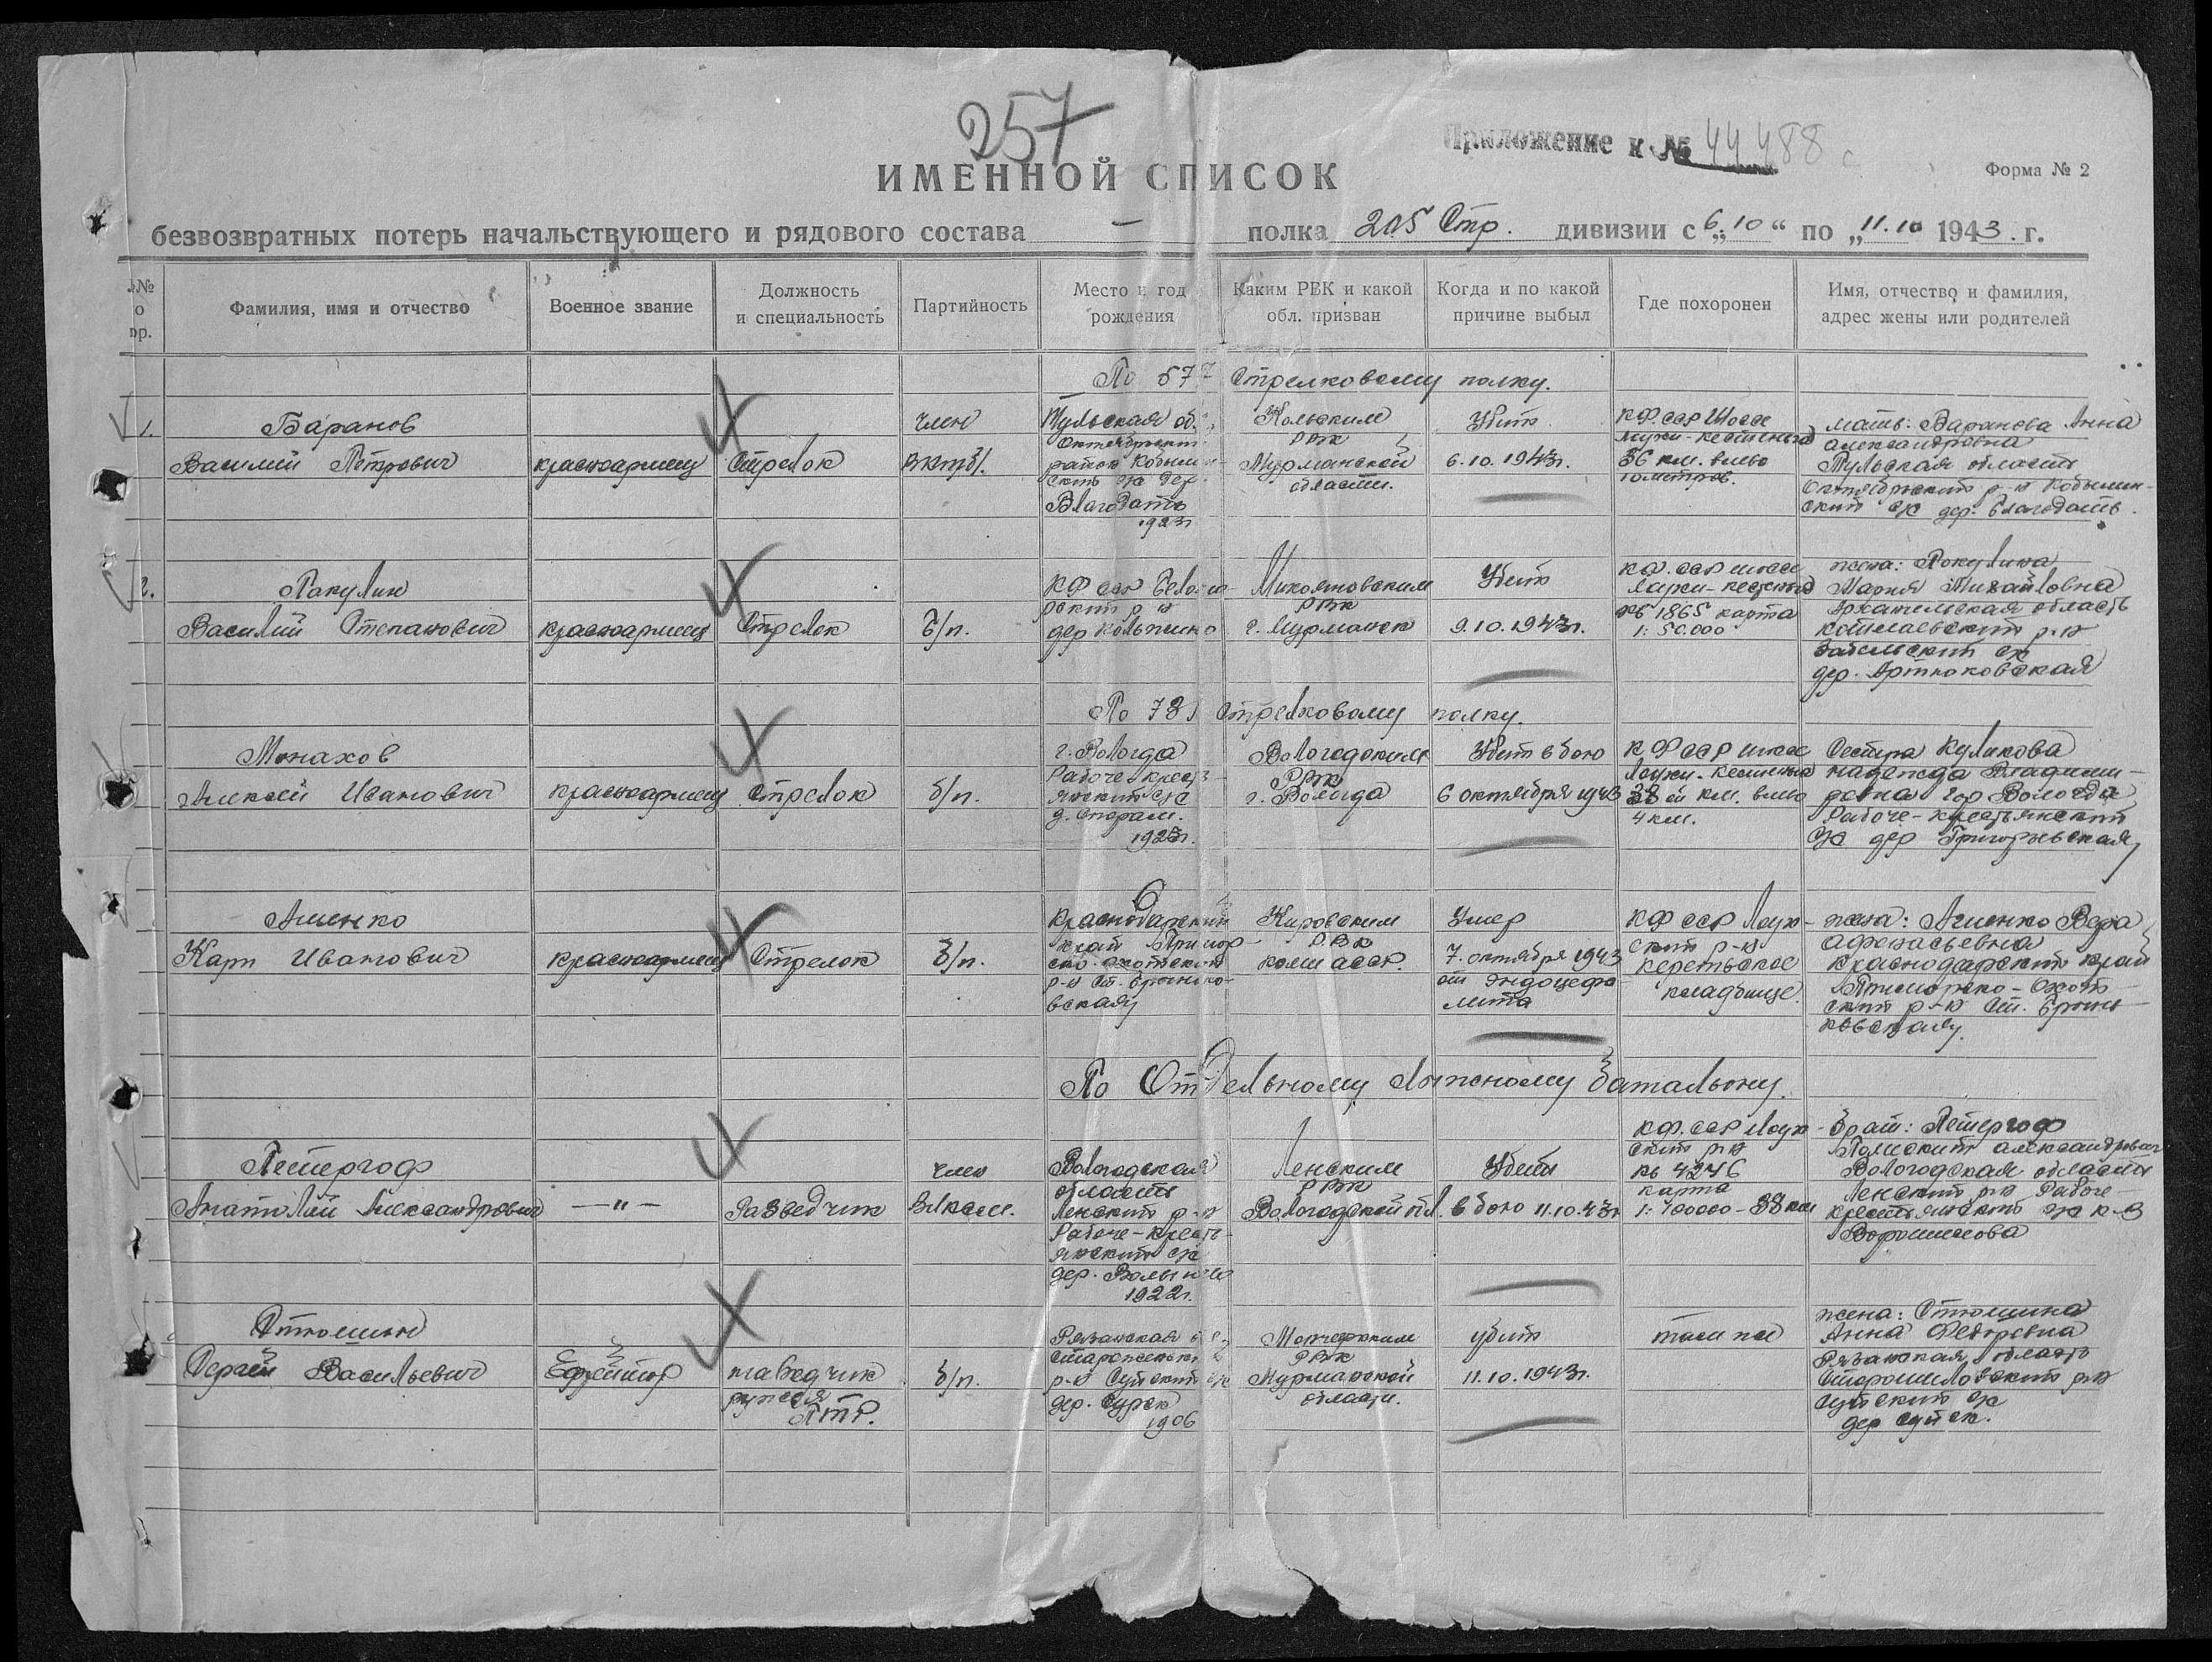 257
Приложение к № 44488 с
ИМЕННОЙ СПИСОК
Форма № 2
безвозвратных потерь начальствующего и рядового состава — полка 205 Стр. дивизии с „6.10“ по „11.10 1943 г.
№№
Фамилия, имя и отчество
Военное звание
Должность
и специальность
Партийность
Место и год
рождения
Каким РВК и какой
обл. призван
Когда и по какой
причине выбыл
Где похоронен
Имя, отчество и фамилия,
адрес жены или родителей
По 577 Стрелковому полку.
1.
Баранов
Василий Петрович
красноармеец
Стрелок
член
ВКП/б/.
Тульская об.
район Кобылин
ский с/с дер.
Благодать
1923г
Кольским
РВК
Мурманской
области.
Убит
6.10.1943г.
КФ сср Шоссе
Лоухи-Кестеньга
36 км. влево
10 метров.
мать: Баранова Анна
Александровна
Тульская область
Октябрьский р-н Кобылин-
ский с/с дер. Благодать.
2.
Пакулин
Василий Степанович
красноармеец
Стрелок
Б/п.
КФ сср Беломо-
рский р-н
дер Кольжино
Микояновским
РВК
г. Мурманск
Убит
9.10.1943г.
КФ. сср шоссе
Лоухи-Кестеньга
кв 1865 карта
1:50.000
жена: Пакулина
Мария Михайловна
Архангельская область
р-н
с/с
дер. Артюковская
По 781 Стрелковому полку.
Монахов
Алексей Иванович
красноармеец
Стрелок
б/п.
г. Вологда
Рабоче-крестья
янский с/с
1923г.
Вологодским
РВК
г. Вологда
Убит в бою
6 октября 1943
КФ сср шоссе
Лоухи-Кестеньга
38 й км. влево
4 км.
Сестра Куликова
Надежда Владими-
ровна гор Вологда,
Рабоче-крестьянский
с/с дер Григорьевская,
Ашенко
Карп Иванович
красноармеец
Стрелок
Б/п.
Краснодарский
край Примор-
ско-Ахтарский
р-н ст. Бринько-
вская
Кировским
РВК
Коми АССР.
Умер
7. октября 1943
от энцефа-
лита
КФ сср Лоух-
ский р-н
Керетьское
кладбище.
жена: Ашенко Вера
Афанасьевна
Краснодарский край
р-н ст. Бринь-
ковскаяу.
По Отдельному лыжному батальону.
Петергоф
Анатолий Александрович
—"—
Разведчик
член
ВЛКСМ.
Вологодская
область
Ленский р-н
Рабоче-Кресть-
янский с/с
1922г.
Ленским
РВК
Вологодской обл.
Убит
в бою 11.10.43г
КФ. сср Лоух-
ский р-н
кв 4246
карта
1:100000 - 38 км
брат: Петергоф
Александрович
Вологодская область
Ленский р-н Рабоче-
крестьянский с/с к-з
Ворошилова
Стюшин
Сергей Васильевич
Ефрейтор
наводчик
ружья
ПТР.
Б/п.
Рязанская об
р-н
1906
Мончегорским
РВК
Мурманской
области.
убит
11.10.1943г.
там же
жена: Стюшина
Анна Федоровна
Рязанская область
Старожиловский р-н